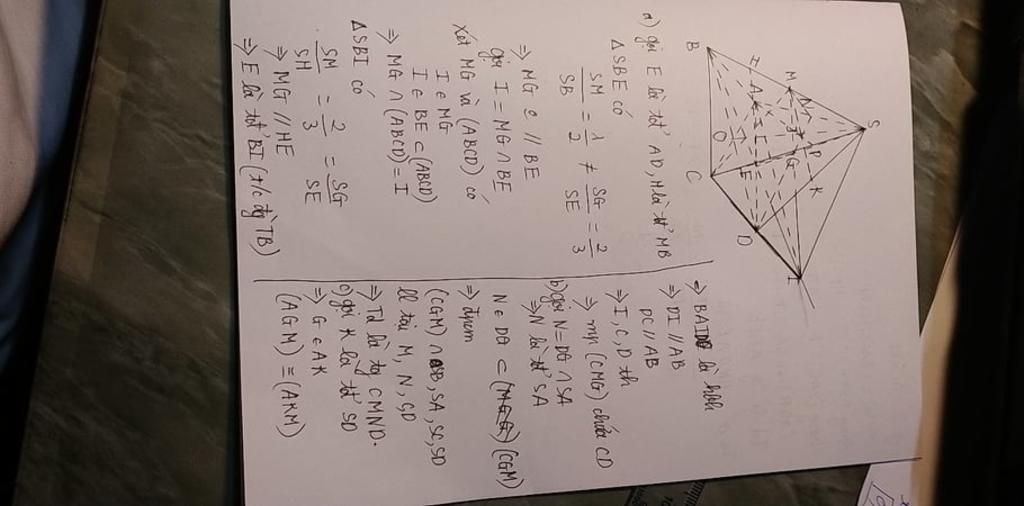 S
M
N
P
K
G
I
A
E
B
O
C
D
I
a) gọi E là tđ' AD, H là tđ' MB
∆SBE có
SM/SB = 1/2 ≠ SG/SE = 2/3
⇒ MG // BE
gọi I = MG ∩ BE
xét MG và (ABCD) có
I ∈ MG
I ∈ BE ⊂ (ABCD)
⇒ MG ∩ (ABCD) = I
∆SBI có
SM/SH = 2/3 = SG/SE
⇒ MG // HE
⇒ E là tđ' BI (t/c đg TB)
⇒ BAID là hbh
⇒ DI // AB
DC // AB
⇒ I, C, D th
⇒ mp (CMG) chứa CD
b) gọi N = DG ∩ SA
⇒ N là tđ' SA
N ∈ DG ⊂ (CGM)
⇒ đpcm
(CGM) ∩ SB, SA, SC, SD
tại M, N, SD
⇒ Td là tg CMND.
c) gọi K là tđ' SD
⇒ G ∈ AK
(AGM) ≡ (AKM)